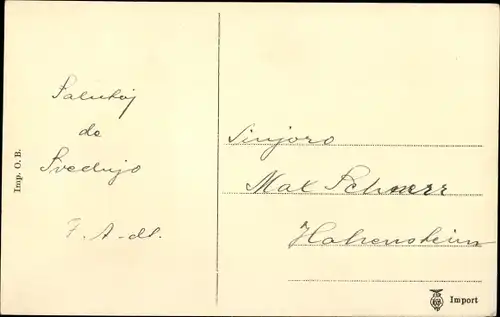 Salutoj
de
Svedujo
F. A-dt.
Sinjoro
Max Schnerr
Hohenstein
Imp. O. B.
Import